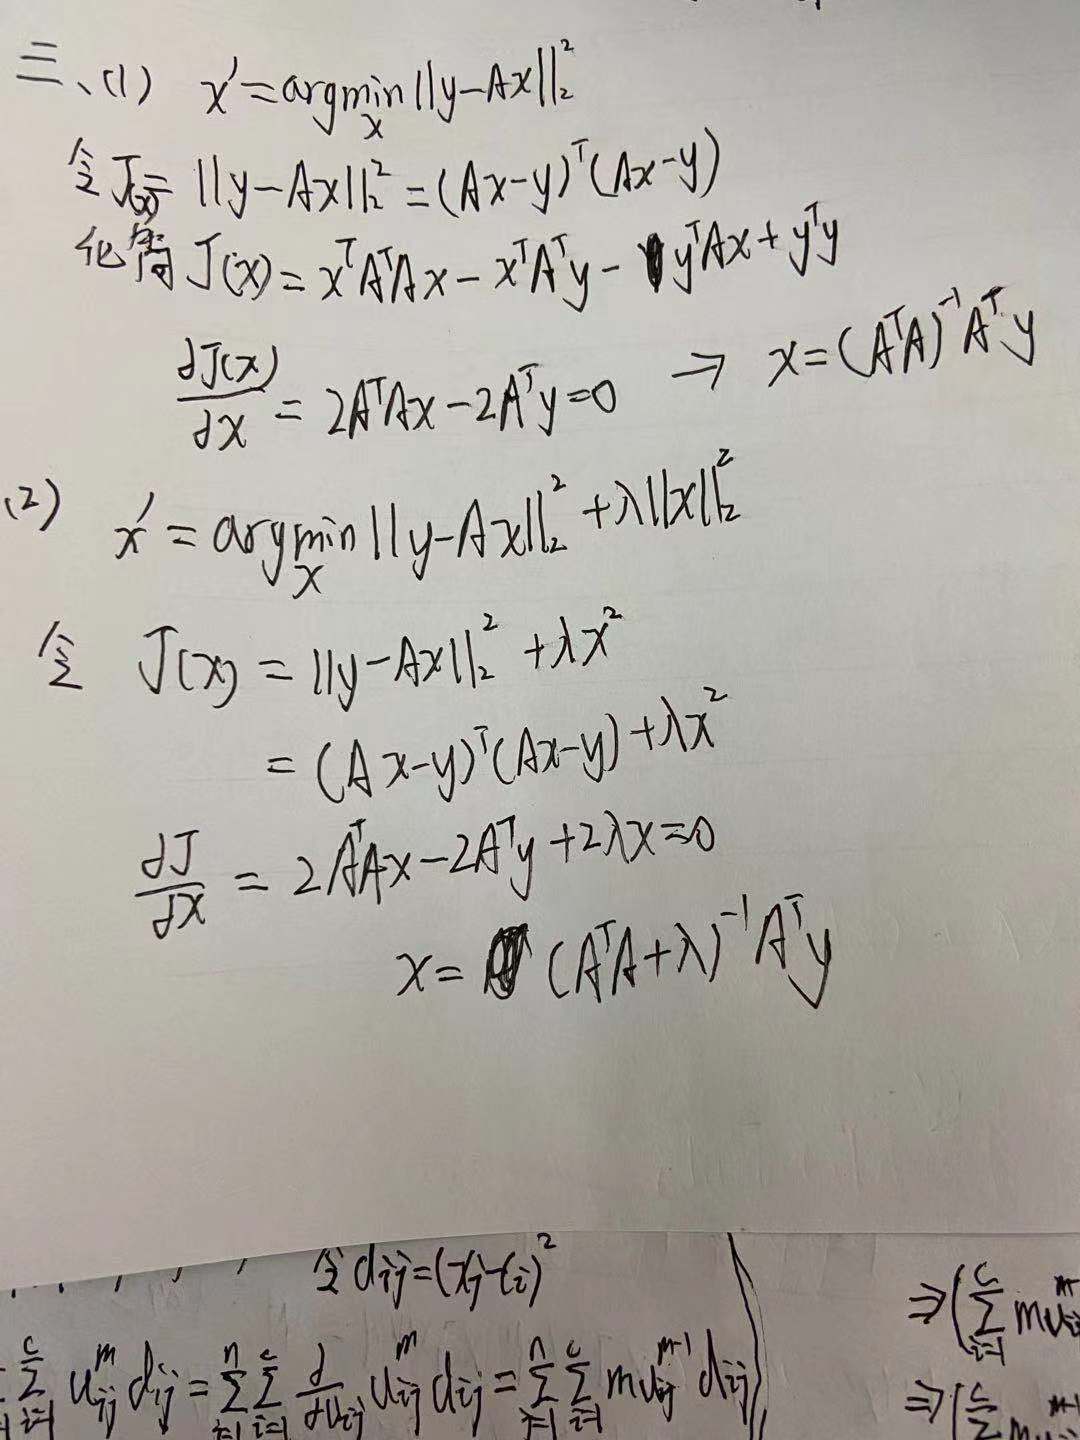 三、(1) x' = argmin_x ||y-Ax||₂²
令J(x)= ||y-Ax||₂² = (Ax-y)ᵀ(Ax-y)
化简 J(x) = xᵀAᵀAx - xᵀAᵀy - yᵀAx + yᵀy
dJ(x)/dx = 2AᵀAx - 2Aᵀy = 0 → x = (AᵀA)⁻¹Aᵀy
(2) x' = argmin_x ||y-Ax||₂² + λ||x||₂²
令 J(x) = ||y-Ax||₂² + λx²
= (Ax-y)ᵀ(Ax-y) + λx²
dJ/dx = 2AᵀAx - 2Aᵀy + 2λx = 0
x = (AᵀA+λ)⁻¹Aᵀy
令 dij = (xj-ci)²
∑_{i=1}^c uij^m dij = ∑_{j=1}^n ∑_{i=1}^c d/duij uij^m dij = ∑_{j=1}^n ∑_{i=1}^c m uij^{m-1} dij
⇒ (∑_{i=1}^c m
⇒ (∑